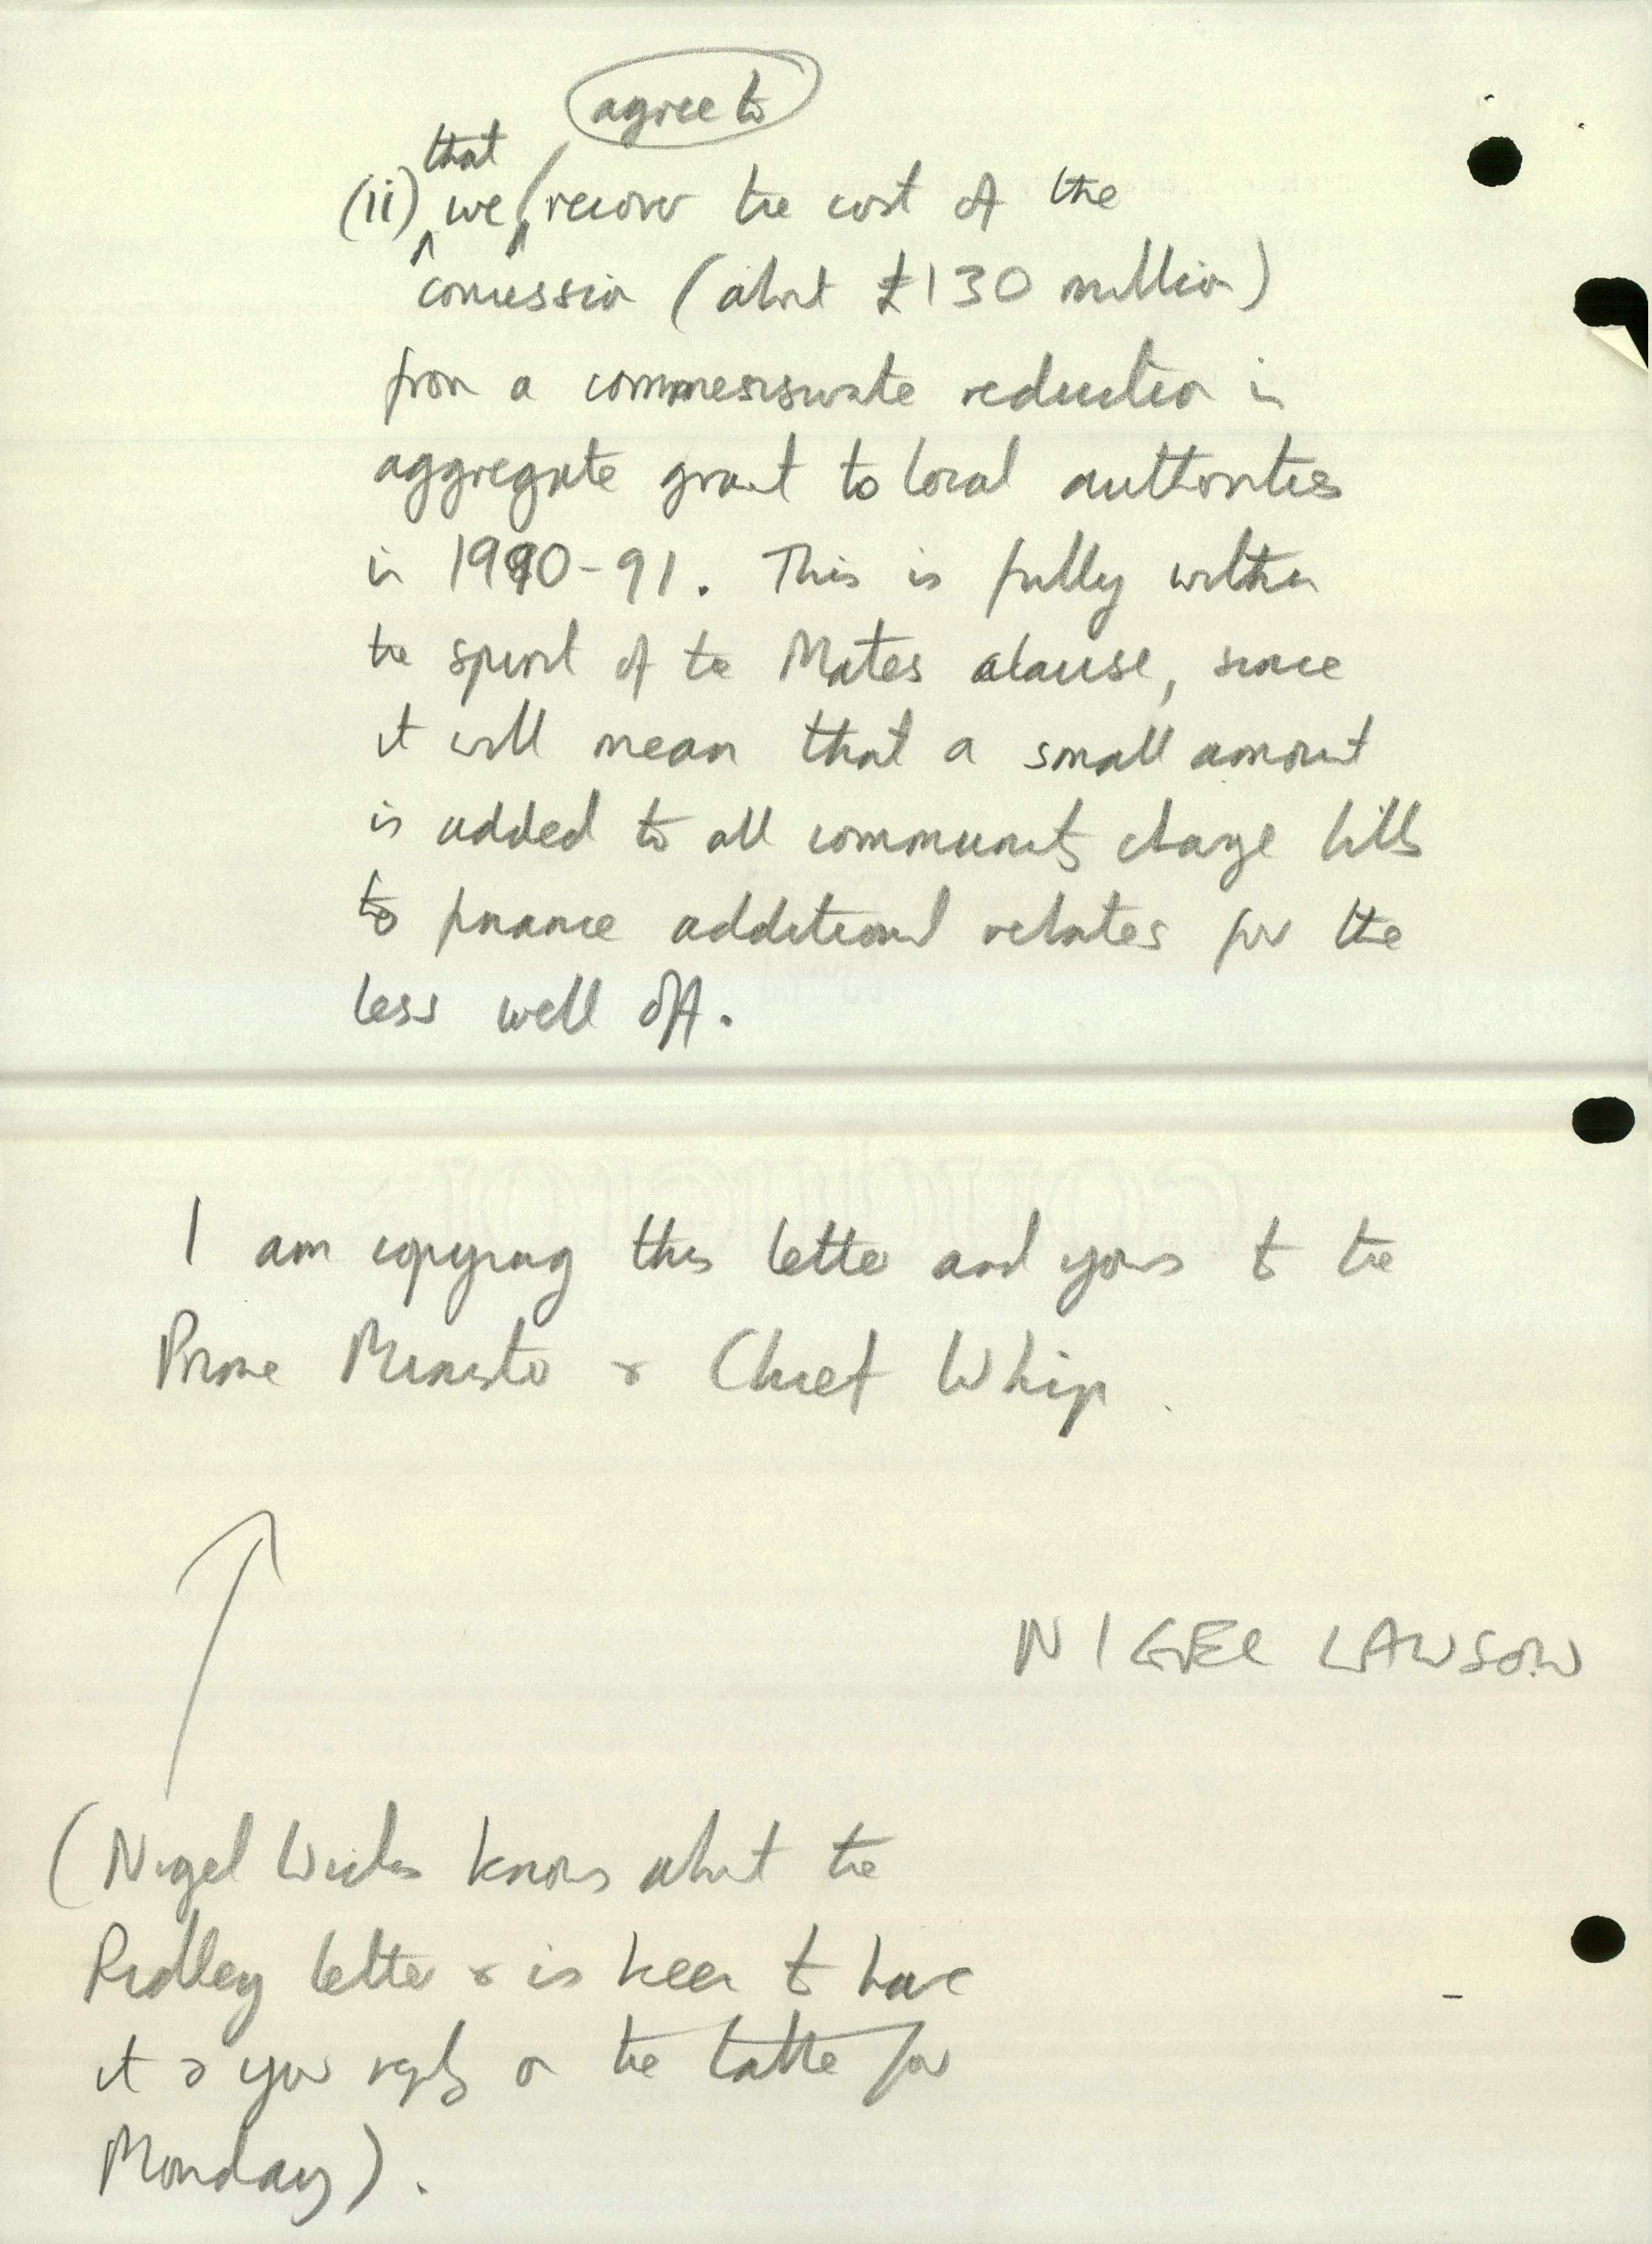 agree to
that
(ii) we recover the cost of the
concession (about £130 million)
from a commensurate reduction in
aggregate grant to local authorities
in 1990-91. This is fully within
the spirit of the Mates clause, since
it will mean that a small amount
is added to all community charge bills
to finance additional rebates for the
less well off.
I am copying this letter and yours to the
Prime Minister & Chief Whip.
NIGEL LAWSON
(Nigel Wicks knows about the
Ridley letter & is keen to have
it & your reply on the table for
Monday).